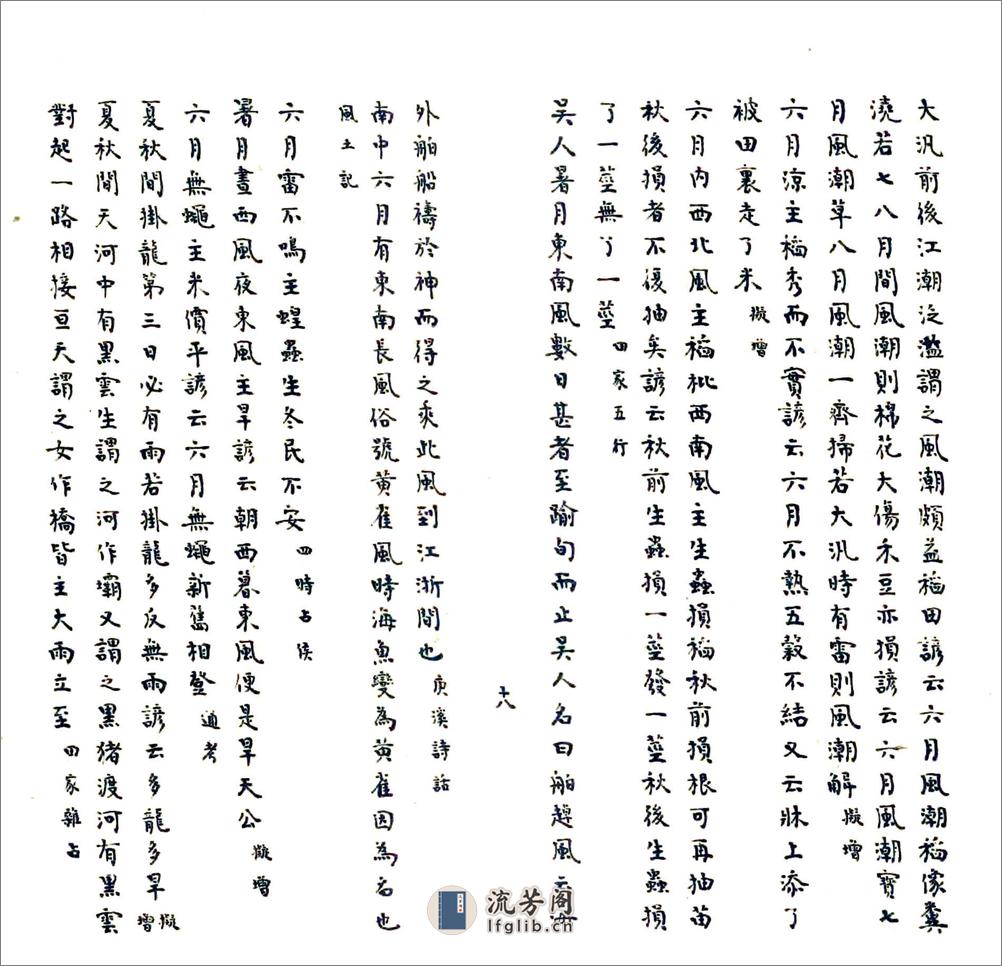 大汛前後江潮泛濫謂之風潮頗益稻田諺云六月風潮稻像糞
澆若七八月間風潮則棉花大傷禾豆亦損諺云六月風潮寶七
月風潮草八月風潮一齊掃若大汛時有雷則風潮解 擬增
六月涼主稻秀而不實諺云六月不熱五穀不結又云牀上添了
被田裏走了米 擬增
六月內西北風主稻秕西南風主生蟲損稻秋前損根可再抽苗
秋後損者不復抽矣諺云秋前生蟲損一莖發一莖秋後生蟲損
了一莖無了一莖 四家五行
吳人暑月東南風數日甚者至踰旬而止吳人名曰舶趠風云
十八
外舶船禱於神而得之乘此風到江浙間也 庚溪詩話
南中六月有東南長風俗號黃雀風時海魚變為黃雀因為名也
風土記
六月雷不鳴主蝗蟲生冬民不安 四時占候
暑月晝西風夜東風主旱諺云朝西暮東風便是旱天公 擬增
六月無蠅主米價平諺云六月無蠅新舊相登 通考
夏秋間掛龍第三日必有雨若掛龍多反無雨諺云多龍多旱 擬增
夏秋間天河中有黑雲生謂之河作壩又謂之黑猪渡河有黑雲
對起一路相接亘天謂之女作橋皆主大雨立至 田家雜占
流芳阁
lfglib.cn